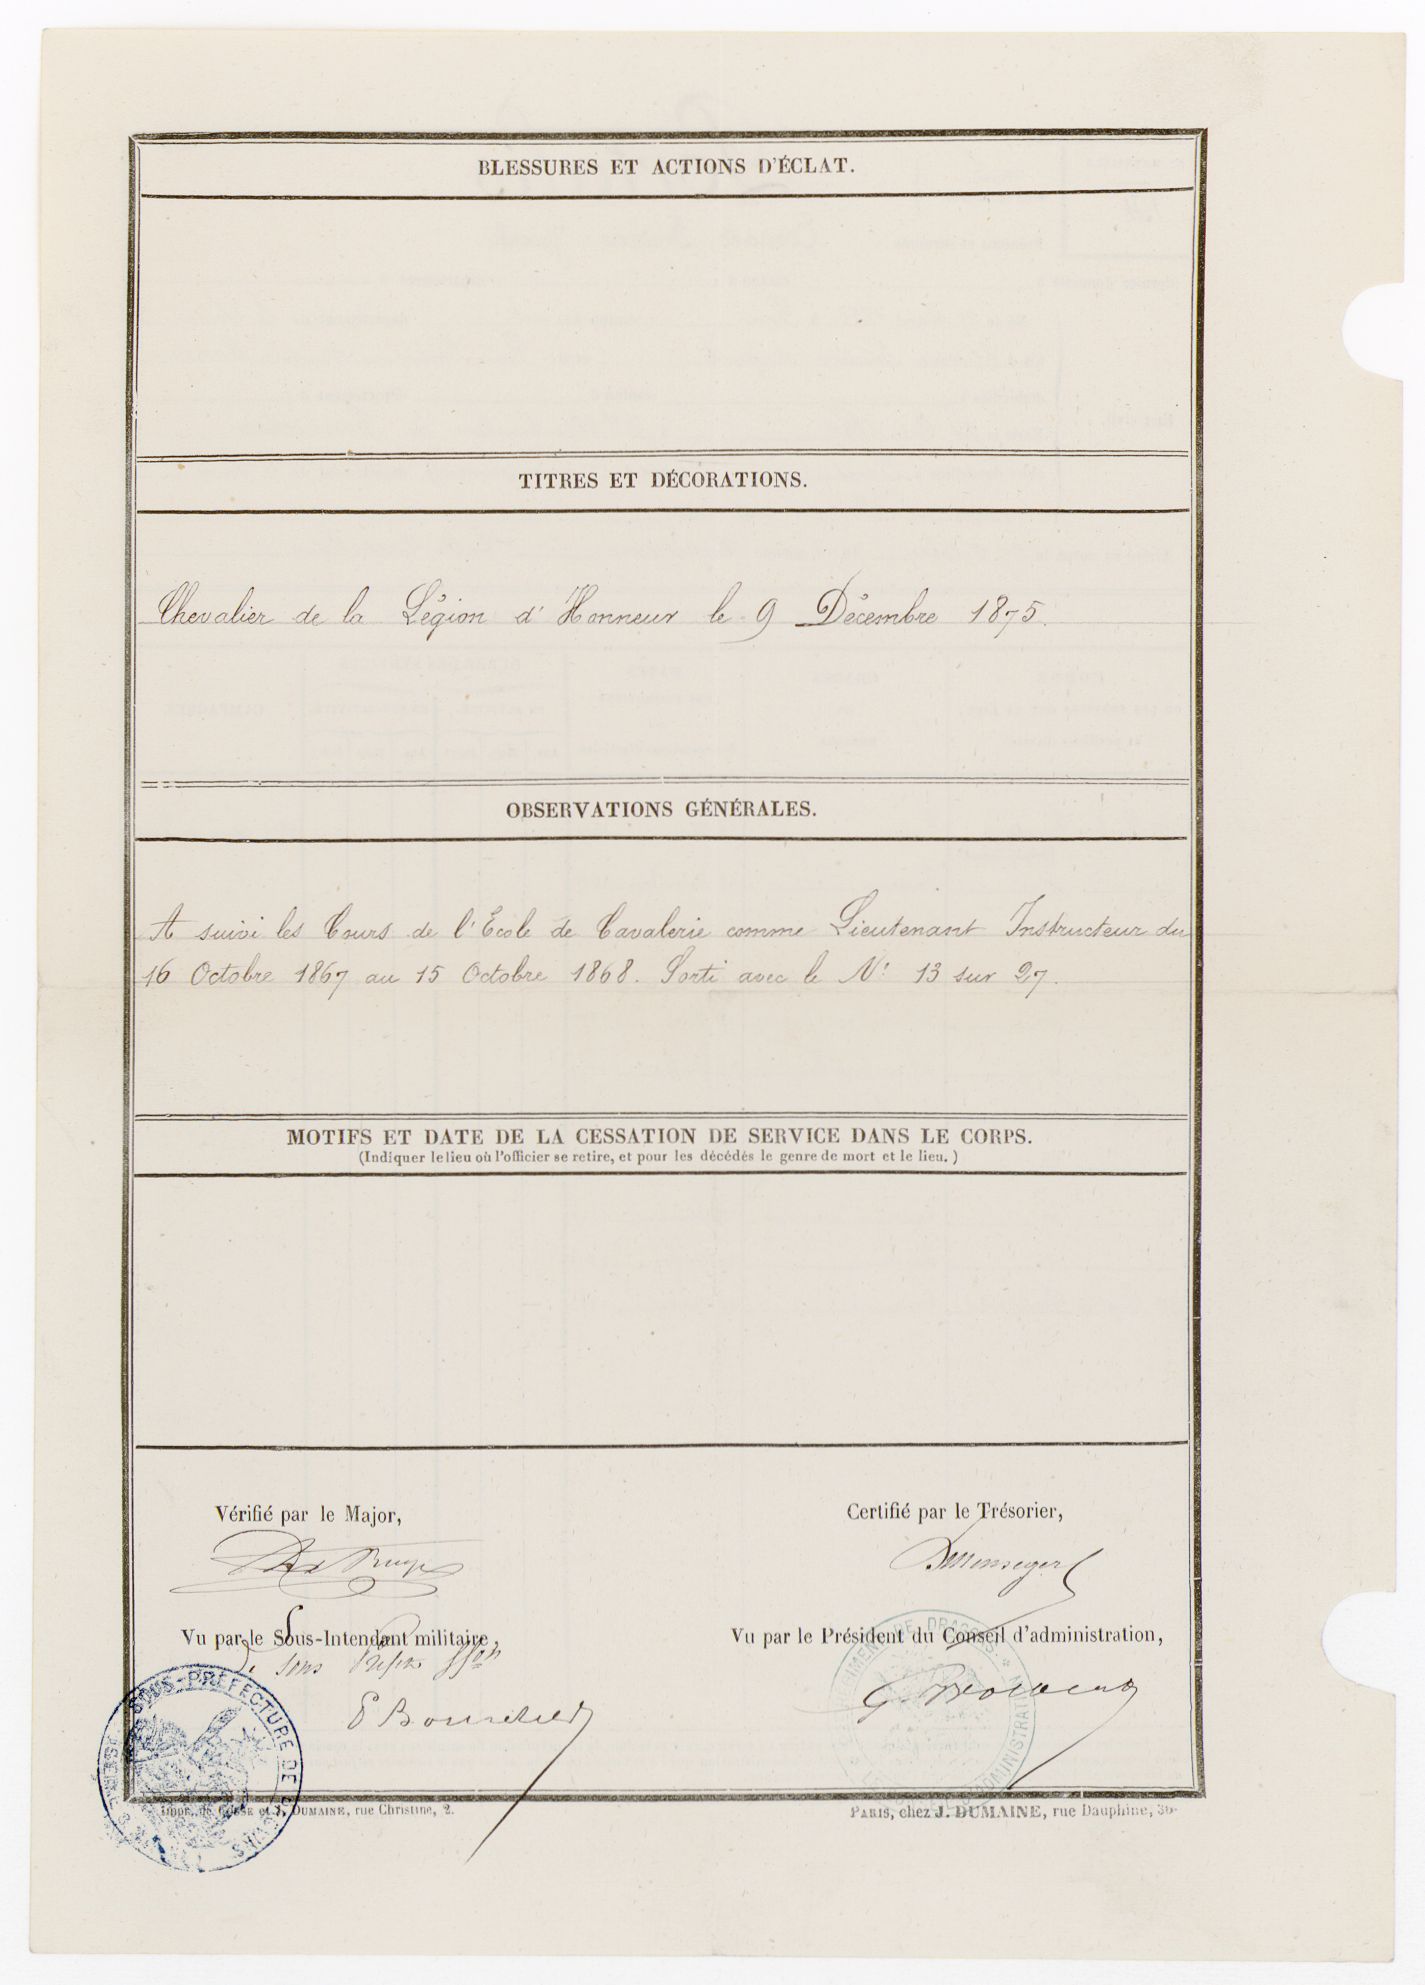 BLESSURES ET ACTIONS D'ÉCLAT.
TITRES ET DÉCORATIONS.
Chevalier de la Légion d'Honneur le 9 Décembre 1875.
OBSERVATIONS GÉNÉRALES.
A suivi les Cours de l'École de Cavalerie comme Lieutenant Instructeur du
16 Octobre 1867 au 15 Octobre 1868. Sorti avec le N: 13 sur 27.
MOTIFS ET DATE DE LA CESSATION DE SERVICE DANS LE CORPS.
(Indiquer le lieu où l'officier se retire, et pour les décédés le genre de mort et le lieu.)
Vérifié par le Major,
Certifié par le Trésorier,
Vu par le Sous-Intendant militaire,
Vu par le Président du Conseil d'administration,
SOUS-PRÉFECTURE DE
DRAGONS
ADMINISTRATION
Impr. de COSSE et J. DUMAINE, rue Christine, 2.
PARIS, chez J. DUMAINE, rue Dauphine, 30.